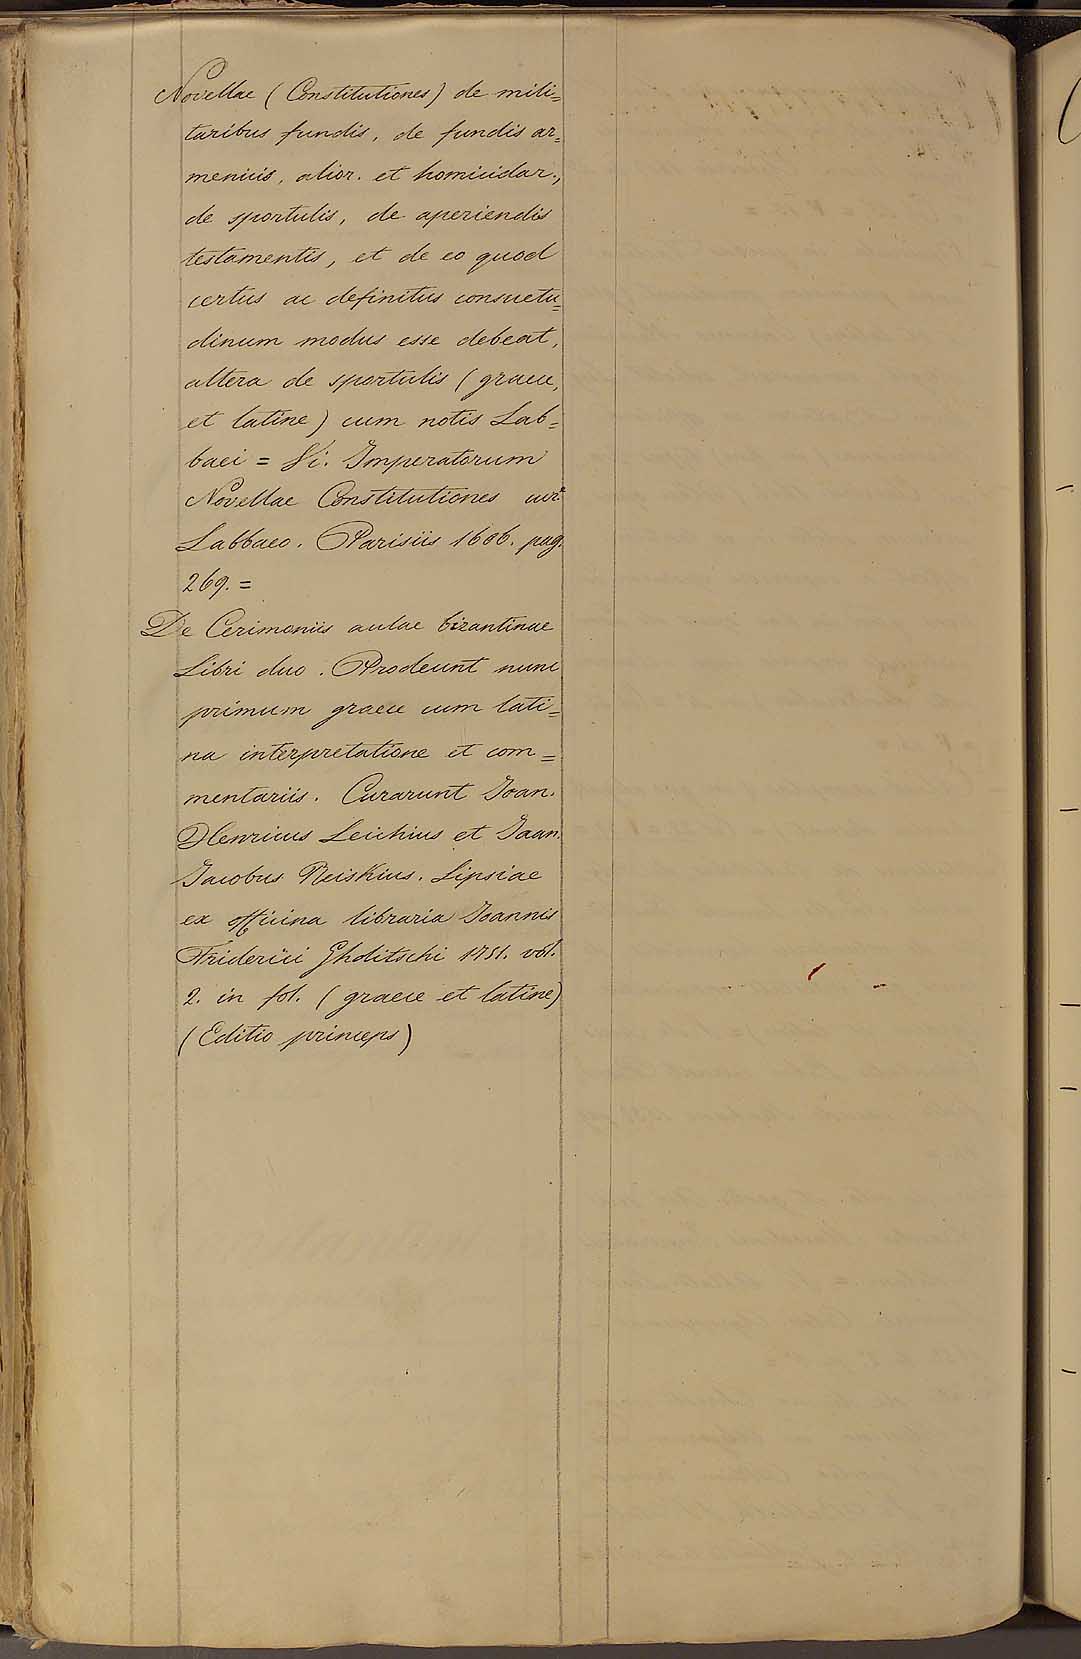 Novellae (Constitutiones) de mili=
taribus fundis, de fundis ar=
meniis, alior. et homicidar.,
de sportulis, de aperiendis
testamentis, et de eo quod
certus ac definitus consuetu=
dinum modus esse debeat,
altera de sportulis (graece,
et latine) cum notis Lab=
baei = Vi. Imperatorum
Novellae Constitutiones cur.
Labbaeo. Parisiis 1606. pag.
269. =
De Cerimoniis aulae bizantinae
Libri duo. Prodeunt nunc
primum graece cum lati=
na interpretatione et com=
mentariis. Curarunt Joan.
Henricus Leichius et Joan.
Jacobus Reiskius. Lipsiae
ex officina libraria Joannis
Friderici Ghditschi 1751. vol.
2. in fol. (graece et latine)
(Editio princeps)